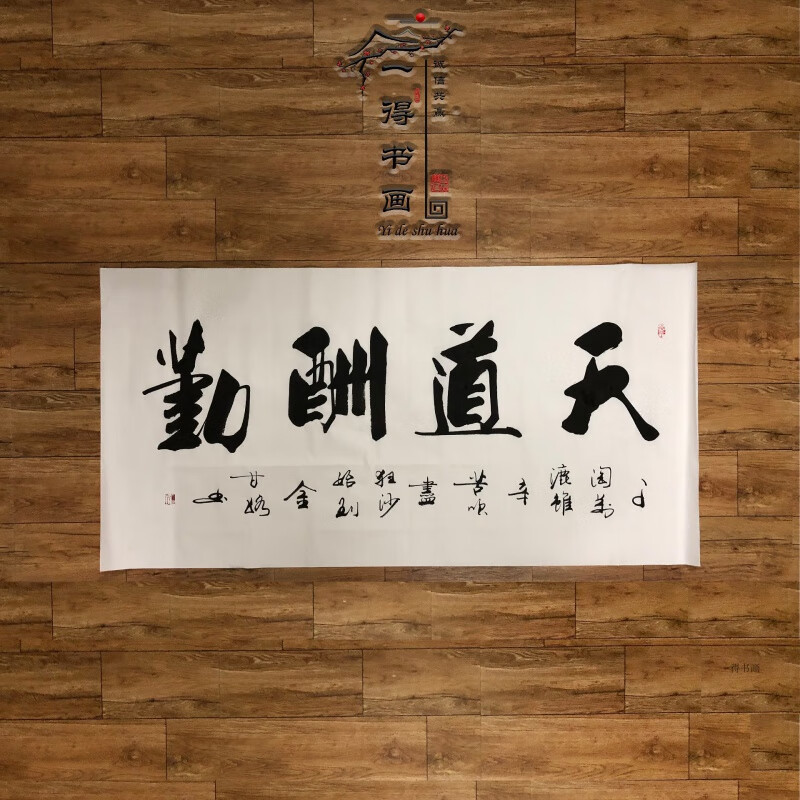 一得书画
诚信共赢
Yi de shu hua
天道酬勤
千淘萬漉雖辛苦吹盡狂沙始到金
甘
书
一得书画